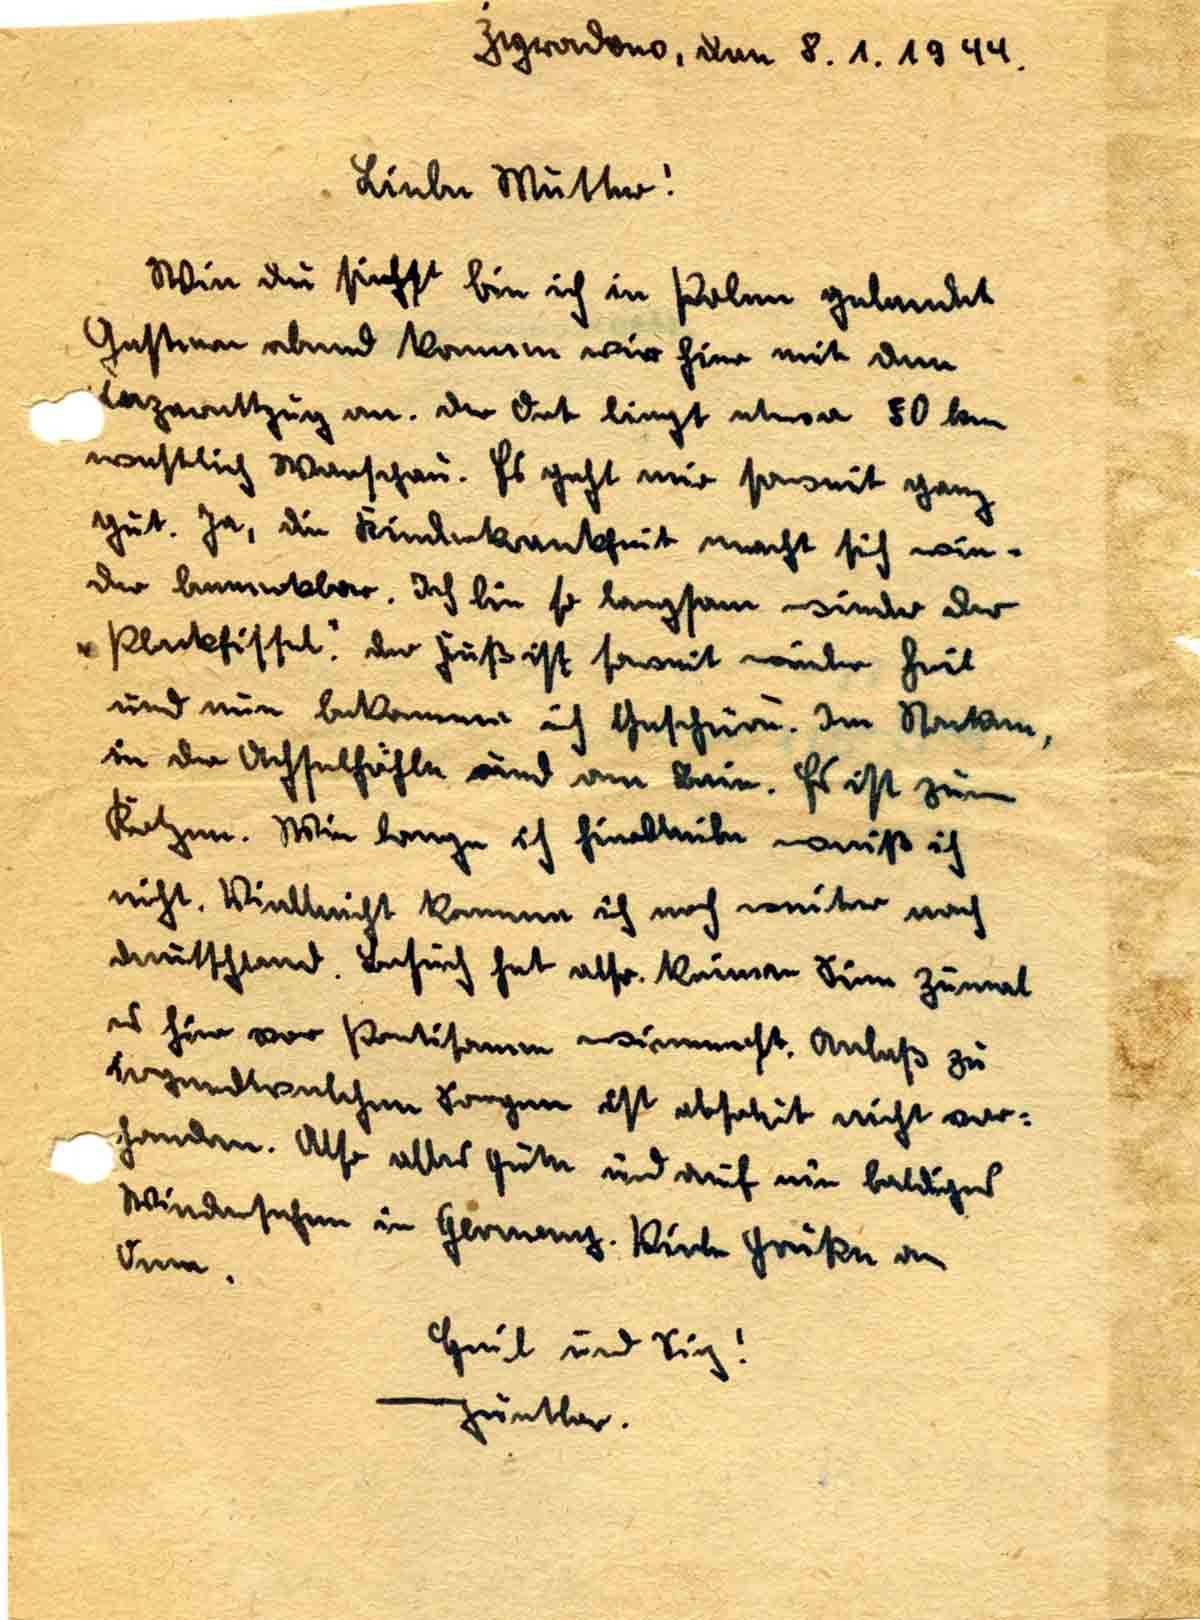 Zygradono, den 8.1.1944.
Liebe Mutter!
Wie du siehst bin ich in Polen gelandet
Gestern abend kamen wir hier mit dem
Lazarettzug an. der Ort liegt etwa 50 km
westlich Warschau. Es geht mir soweit ganz
gut. Ja, die Kinderkrankheit macht sich wie-
der bemerkbar. Ich bin so langsam wieder der
der Fuß ist soweit wieder heil
und nun bekomme ich Geschüre. Im Nacken,
in der Achselhöhle und am Bein. Es ist zum
Kotzen. Wie lange ich hierbleibe weiß ich
nicht. Vielleicht komme ich noch weiter nach
deutschland. Besuch hat also. keinen Sinn zumal
es hier vor Partisanen wimmelt. Anlaß zu
irgendwelchen Sorgen ist absolut nicht vor=
handen. Also alles Gute und auf ein baldiges
Wiedersehen in Germany. Viele Grüße an
Heil und Sieg!